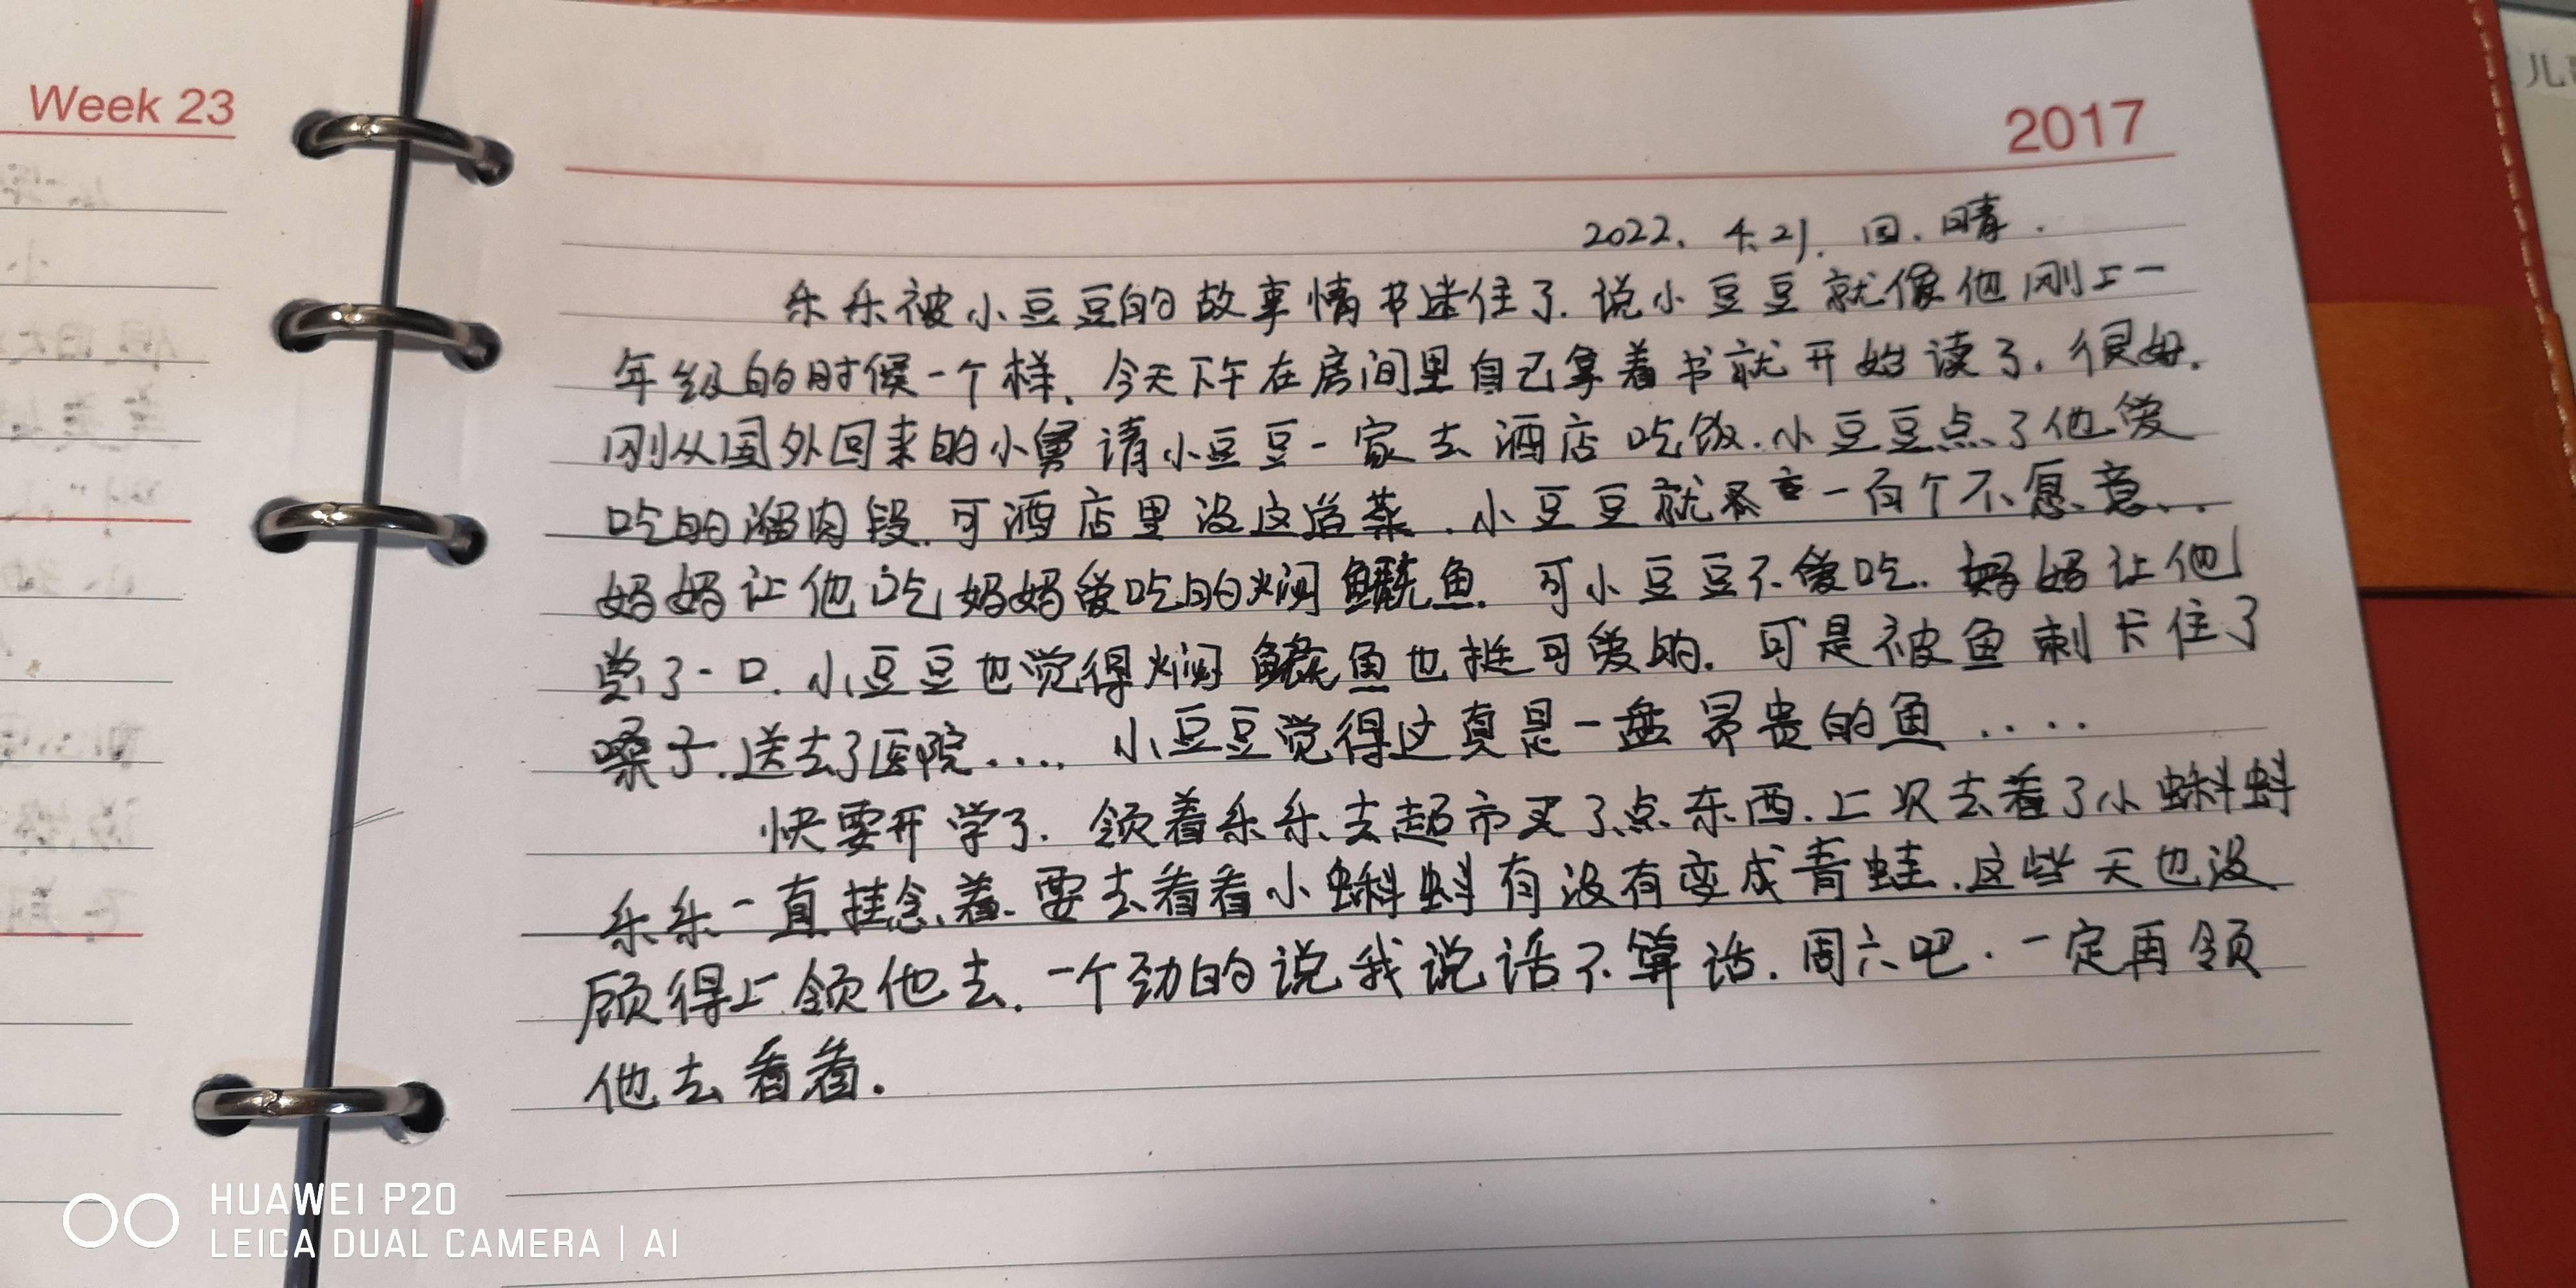 Week 23
2017
2022. 4.21. 四. 晴.
乐乐被小豆豆的故事情书迷住了.说小豆豆就像他刚上一
年级的时候一个样.今天下午在房间里自己拿着书就开始读了.很好.
刚从国外回来的小舅请小豆豆一家去酒店吃饭.小豆豆点了他爱
吃的溜肉段.可酒店里没这道菜.小豆豆就一百个不愿意...
妈妈让他吃妈妈爱吃的焖鱼.可小豆豆不爱吃.妈妈让他
尝了一口.小豆豆也觉得焖鱼也挺可爱的.可是被鱼刺卡住了
嗓子.送去了医院.... 小豆豆觉得这真是一盘昂贵的鱼....
快要开学了.领着乐乐去超市买了点东西.上次去看了小蝌蚪
乐乐一直挂念着.要去看看小蝌蚪有没有变成青蛙.这些天也没
顾得上领他去.一个劲的说我说话不算话.周六吧.一定再领
他去看看.
HUAWEI P20
LEICA DUAL CAMERA | AI